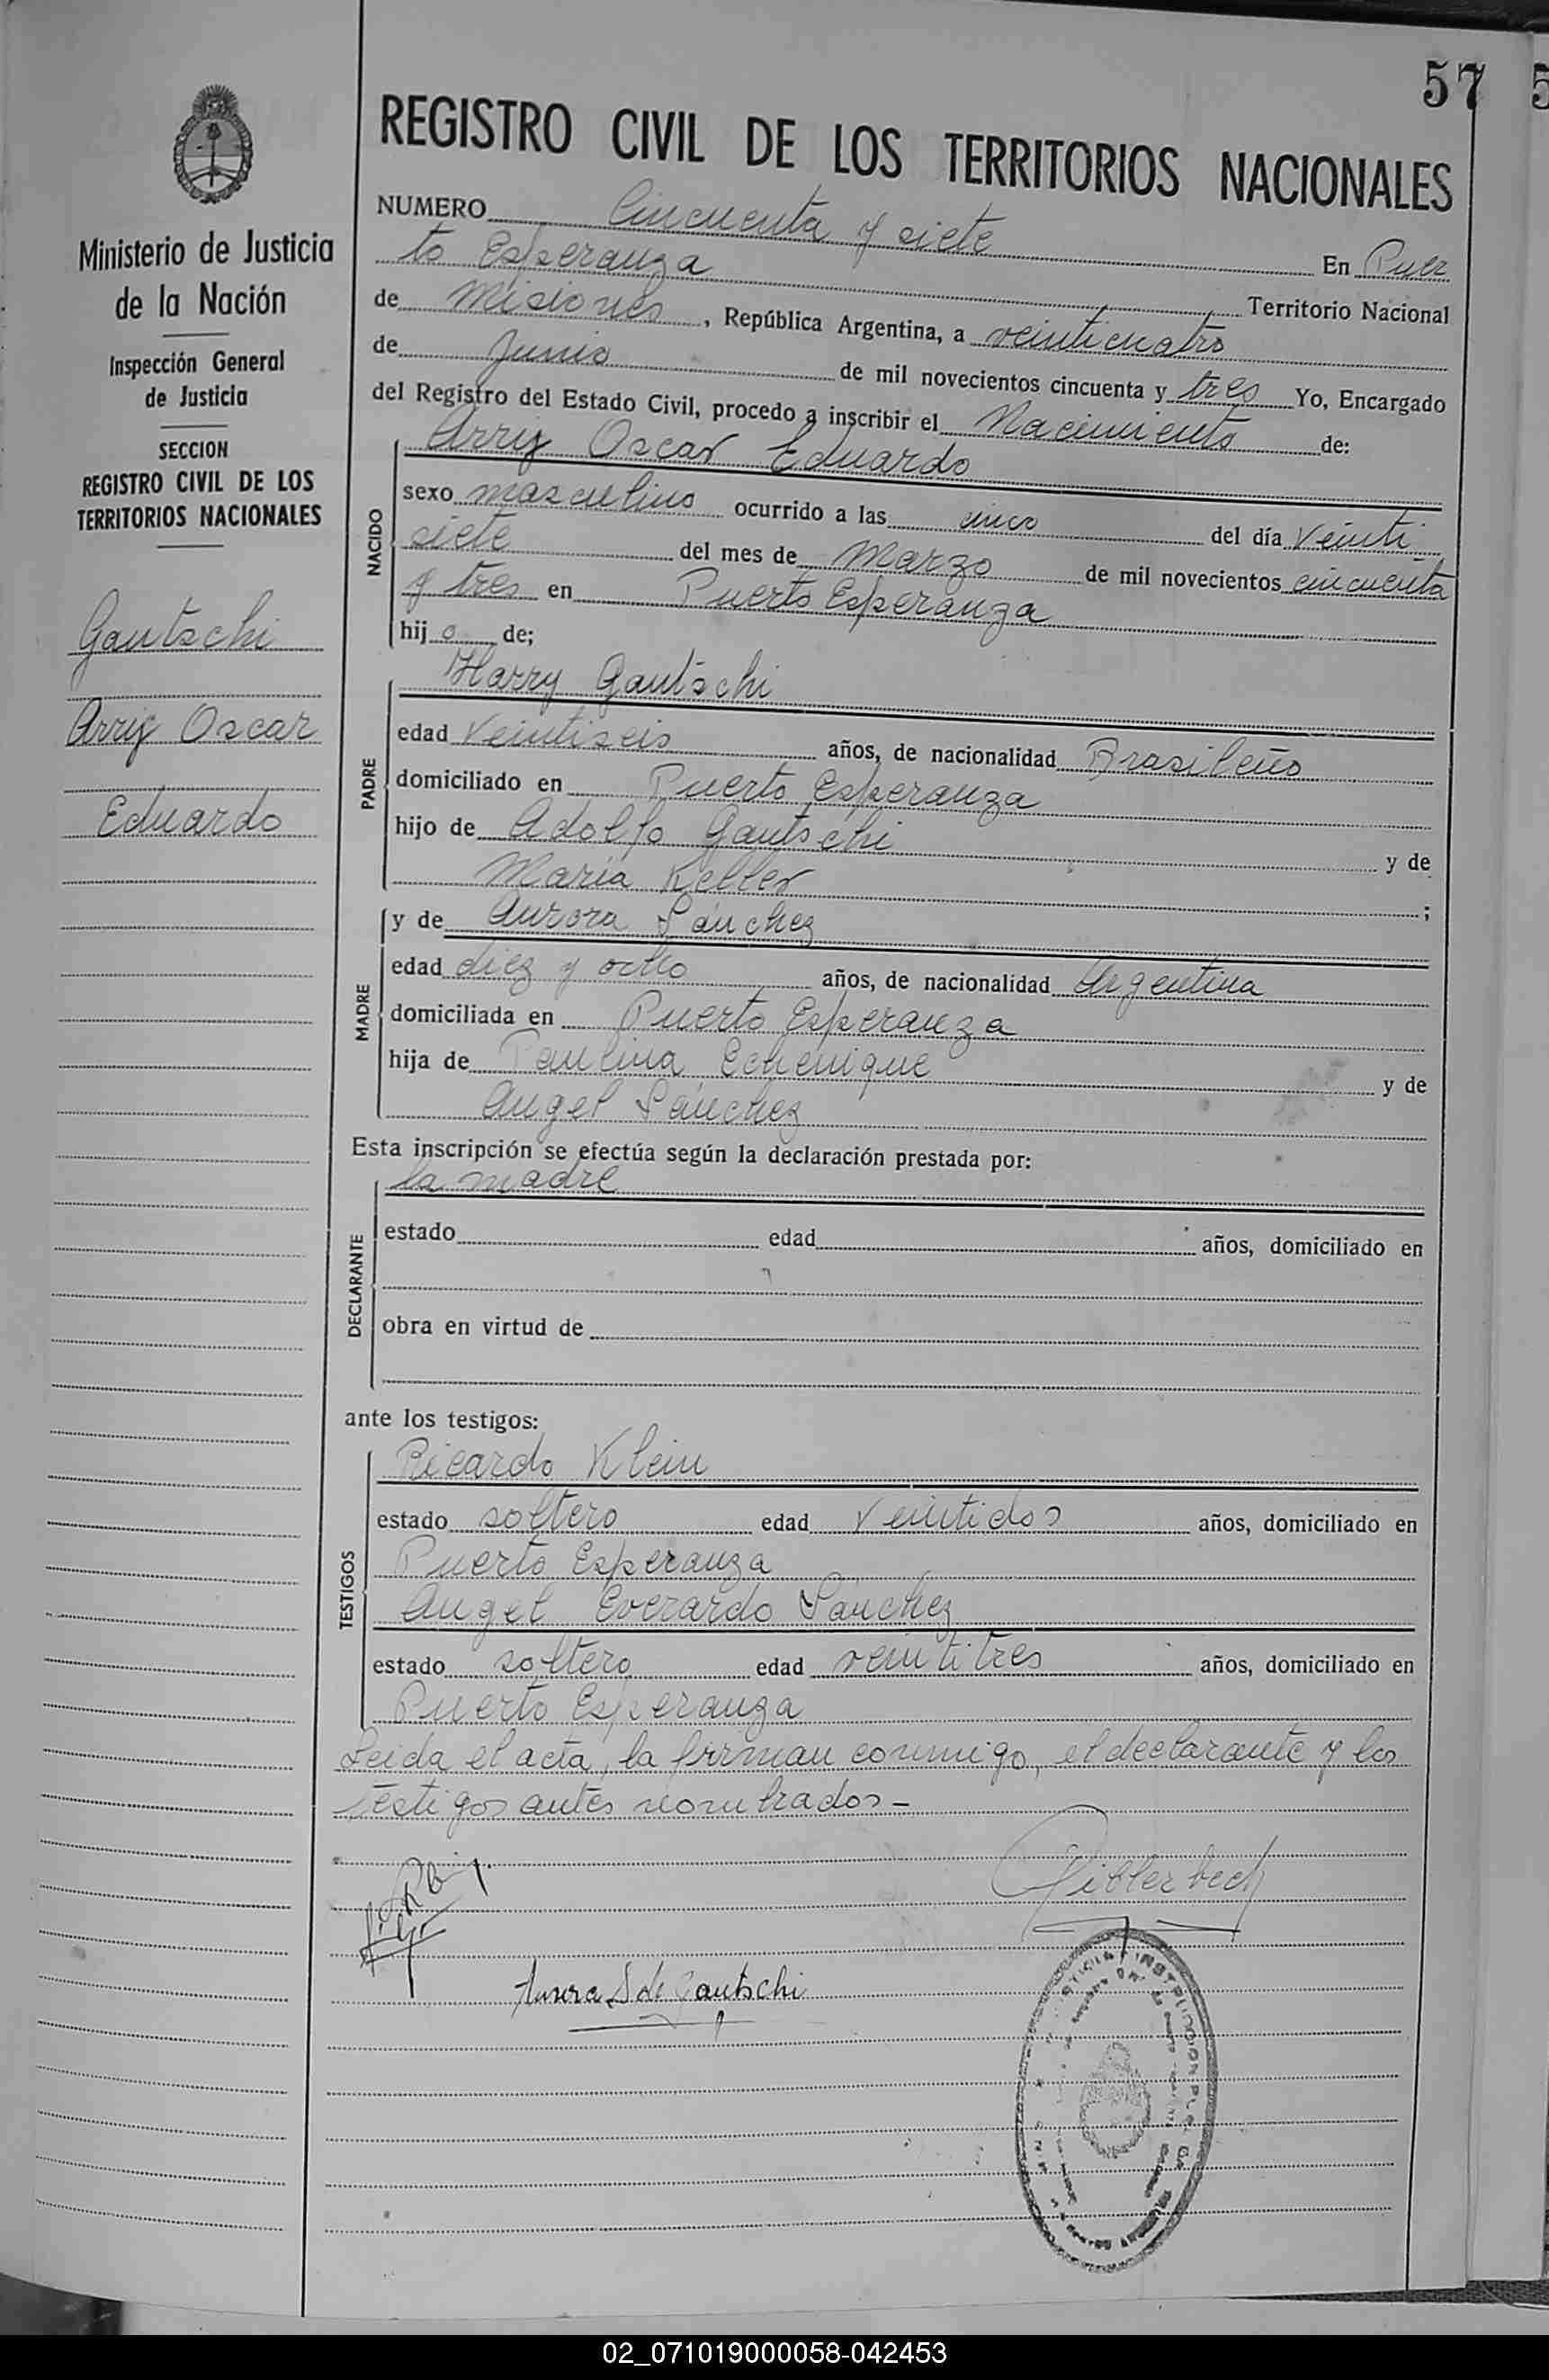 57
REGISTRO CIVIL DE LOS TERRITORIOS NACIONALES
Ministerio de Justicia
de la Nación
Inspección General
de Justicia
SECCION
REGISTRO CIVIL DE LOS
TERRITORIOS NACIONALES
Gautschi
Arriy Oscar
Eduardo
NUMERO Cincuenta y siete En Puer
to Esperanza Territorio Nacional
de Misiones, República Argentina, a veinticuatro
de Junio de mil novecientos cincuenta y tres Yo, Encargado
del Registro del Estado Civil, procedo a inscribir el Nacimiento de:
NACIDO
Arriy Oscar Eduardo
sexo masculino ocurrido a las cinco del día veinti
siete del mes de Marzo de mil novecientos cincuenta
y tres en Puerto Esperanza
hijo de;
PADRE
Harry Gautschi
edad veintiseis años, de nacionalidad Brasileño
domiciliado en Puerto Esperanza
hijo de Adolfo Gautschi y de
Maria Keller ;
MADRE
y de Aurora Sánchez
edad diez y ocho años, de nacionalidad Argentina
domiciliada en Puerto Esperanza
hija de Paulina Echenique y de
Angel Sánchez
Esta inscripción se efectúa según la declaración prestada por:
DECLARANTE
la madre
estado edad años, domiciliado en
obra en virtud de
ante los testigos:
TESTIGOS
Ricardo Klein
estado soltero edad veintidos años, domiciliado en
Puerto Esperanza
Angel Everardo Sánchez
estado soltero edad veintitres años, domiciliado en
Puerto Esperanza
Leida el acta, la firman conmigo, el declarante y los
testigos antes nombrados-
Aurora S de Gautschi
02_071019000058-042453